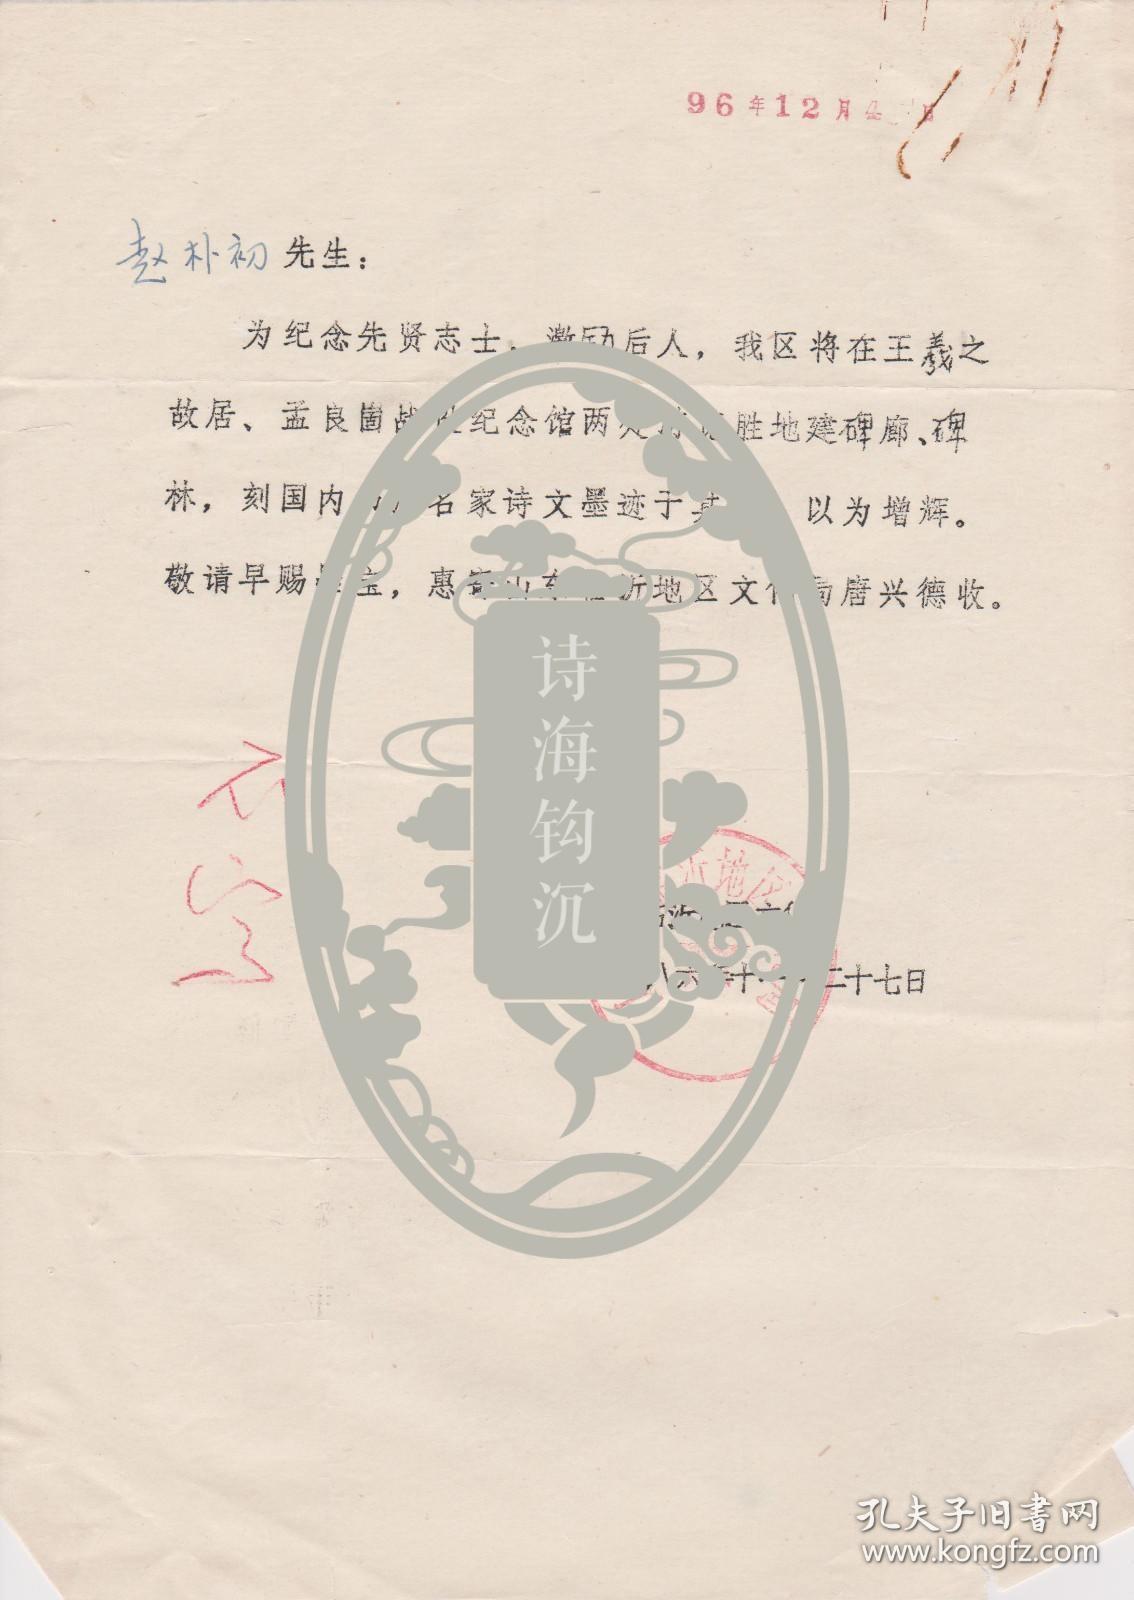 96年12月4日
赵朴初先生：
为纪念先贤志士，激励后人，我区将在王羲之
故居、孟良崮战 纪念馆两 胜地建碑廊、碑
林，刻国内 名家诗文墨迹于其 以为增辉。
敬请早赐 宝，惠寄山东 沂地区文化局唐兴德收。
诗海钩沉
沂地区
八六年十 二十七日
孔夫子旧书网
www.kongfz.com